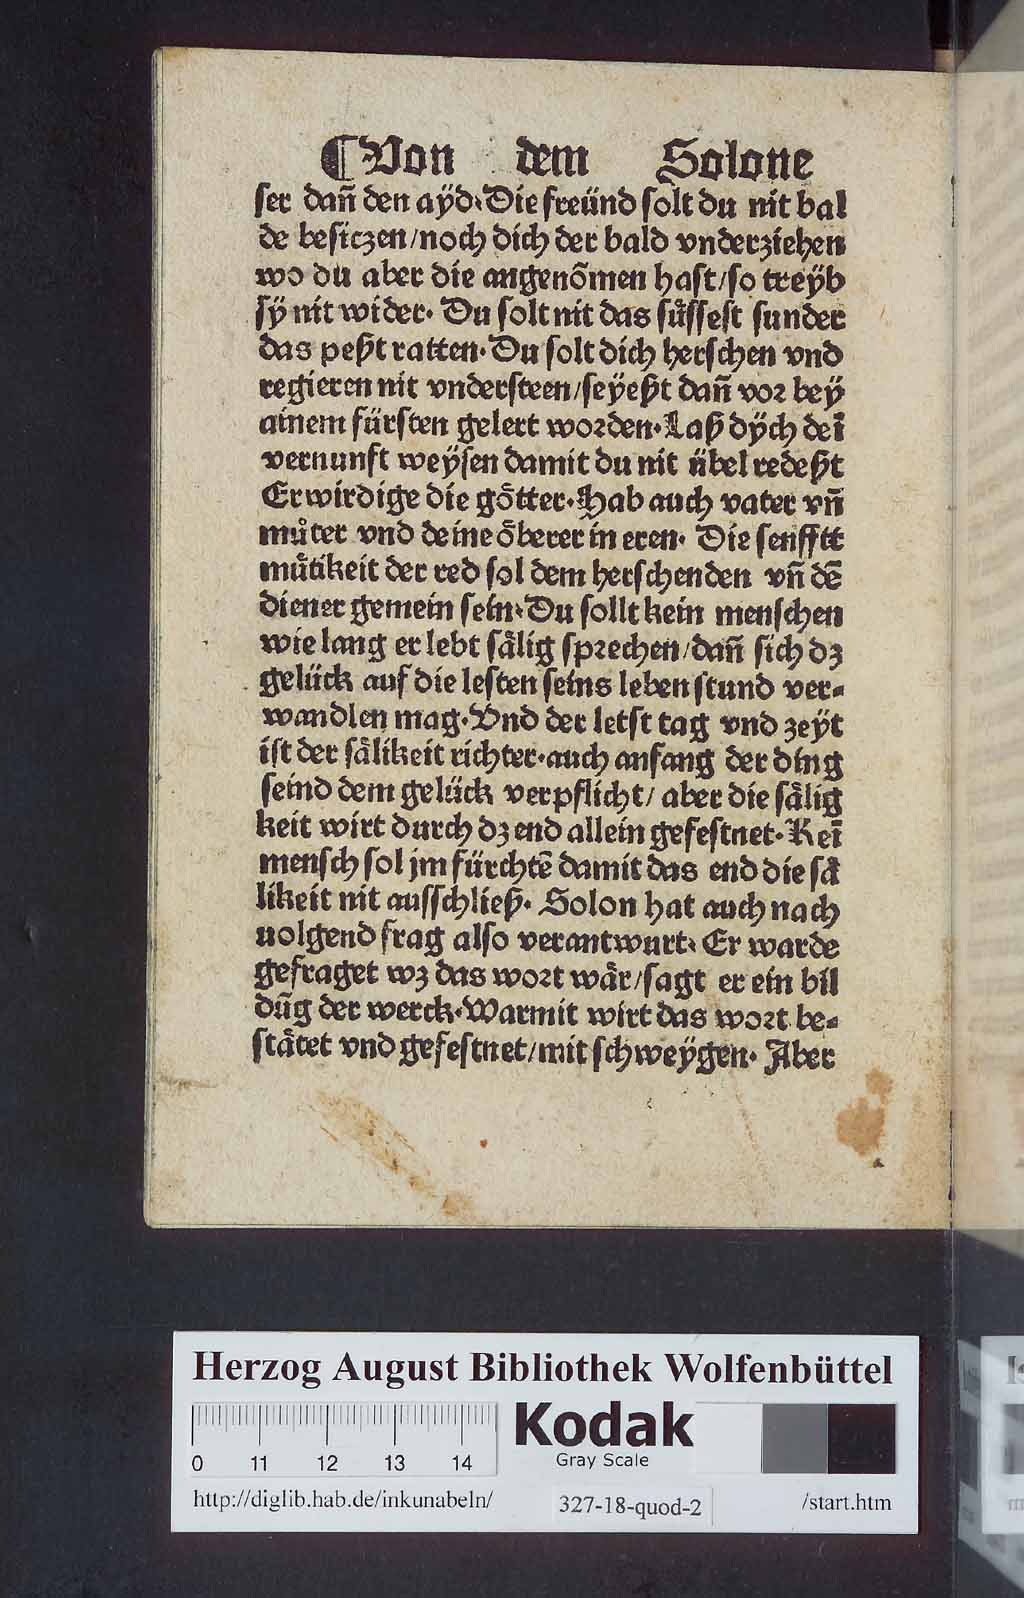 ¶ Von dem Solone
ser dañ den aÿd. Die freünd solt du nit bal
de besiczen/noch dich der bald vnderziehen
wo du aber die angenõmen hast/so treÿb
sÿ nit wider. Du solt nit das suͤssest sunder
das peßt ratten. Du solt dich herschen vnd
regieren nit vndersteen/seÿeßt dañ vor beÿ
ainem fürsten gelert worden. Laß dÿch dei
vernunft weÿsen damit du nit übel redeßt
Er wirdige die goͤtter. Hab auch vater vñ
muͦter vnd deine oͤberer in eren. Die senfftt
muͤtikeit der red sol dem herschenden vñ dẽ
diener gemein sein. Du sollt kein menschen
wie lang er lebt saͤlig sprechen/dañ sich dz
gelück auf die lesten seins leben stund ver-
wandlen mag. Vnd der letst tag vnd zeÿt
ist der saͤlikeit richter. auch anfang der ding
seind dem gelück verpflicht/ aber die saͤlig
keit wirt durch dz end allein gefestnet. Keĩ
mensch sol jm fürchtẽ damit das end die saͤ
likeit nit ausschließ. Solon hat auch nach
uolgend frag also verantwurt. Er warde
gefraget wz das wort waͤr/sagt er ein bil
dũg der werck. Warmit wirt das wort be-
staͤtet vnd gefestnet/mit schweÿgen. Aber
Herzog August Bibliothek Wolfenbüttel
0 11 12 13 14
Kodak
Gray Scale
http://diglib.hab.de/inkunabeln/ 327-18-quod-2 /start.htm